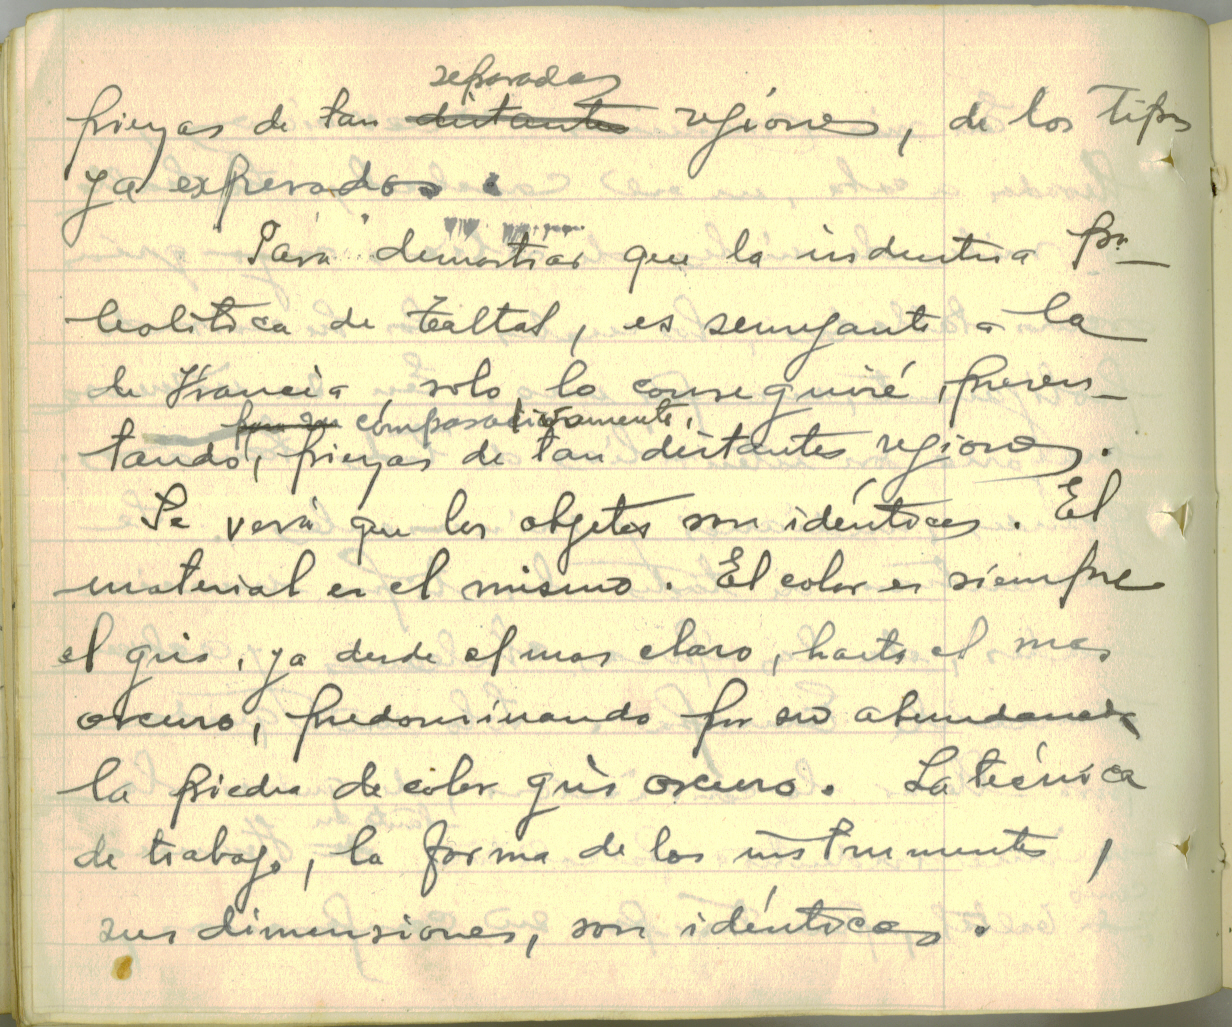 separadas
piezas de tan distantes regiones, de los tipos
ya expresados.
Para demostrar que la industria pa-
leolitica de Taltal, es semejante a la
de Francia, solo lo conseguiré, presen-
comparativamente,
tando, piezas de tan distantes regiones.
Se verá que los objetos son idénticos. El
material es el mismo. El color es siempre
el gris, ya desde el mas claro, hasta el mas
oscuro, predominando por su abundancia
la piedra de color gris oscuro. La técnica
de trabajo, la forma de los instrumentos,
sus dimensiones, son idénticas.